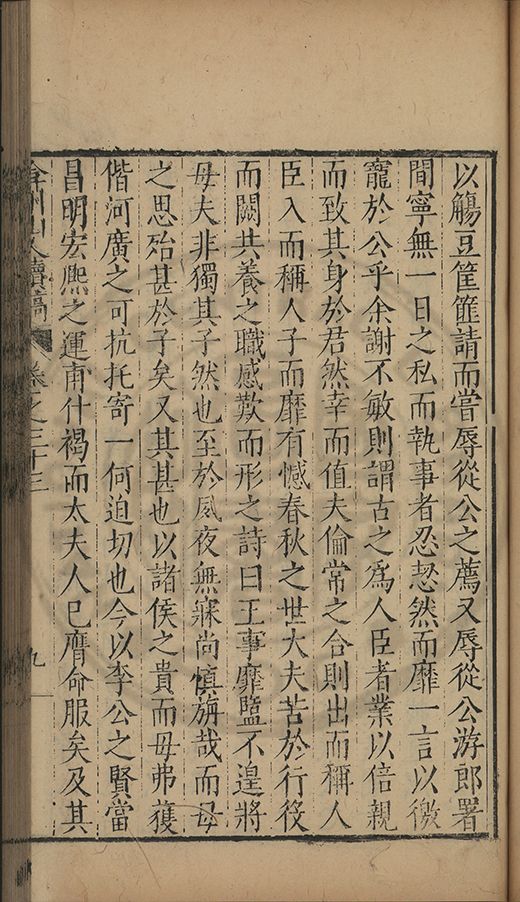 以觴豆筐篚請而嘗辱從公之薦又辱從公游郎署
間寧無一日之私而執事者忍恝然而靡一言以徼
寵於公乎余謝不敏則謂古之爲人臣者業以倍親
而致其身於君然幸而值夫倫常之合則出而稱人
臣入而稱人子而靡有憾春秋之世大夫苦於行役
而闕其養之職感歎而形之詩曰王事靡盬不遑將
母夫非獨其子然也至於夙夜無寐尚慎旃哉而母
之思殆甚於子矣又其甚也以諸侯之貴而母弗獲
偕河廣之可抗托寄一何迫切也今以李公之賢當
昌明宏熈之運甫什褐而太夫人已膺命服矣及其
弇州山人續稿 卷之三十三 九